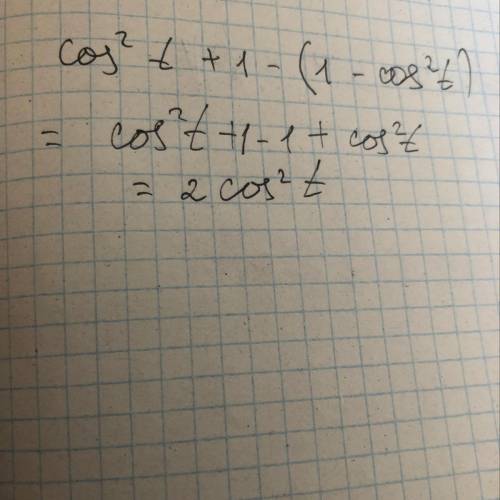 cos² t + 1 - (1 - cos²t)
= cos²t + 1 - 1 + cos²t
= 2 cos² t